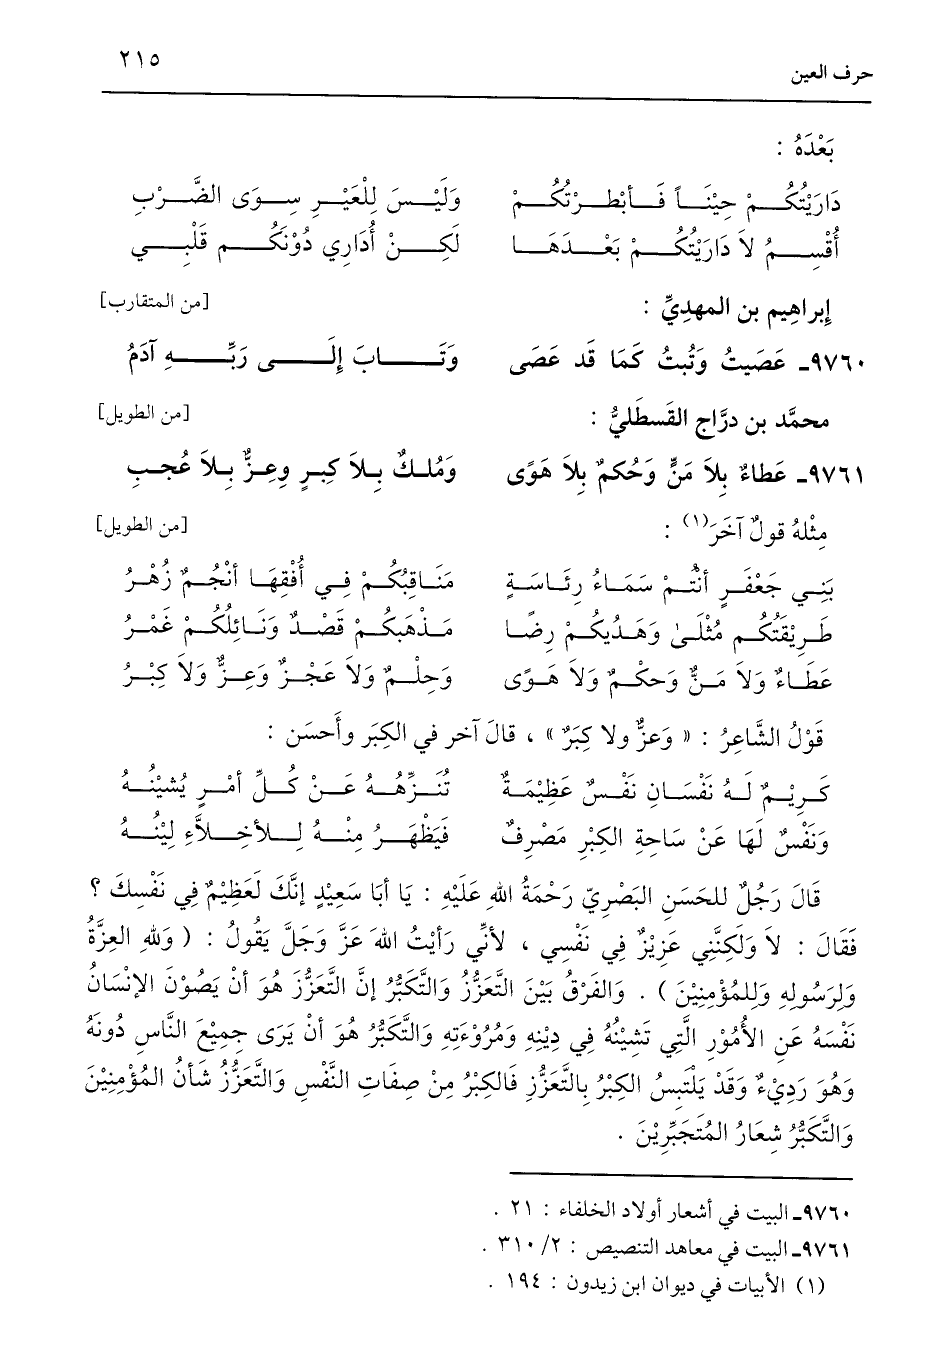 حرف العين ٢١٥
بَعْدَهُ :
دَارَيْتُكُمْ حِيْنَاً فَأَبْطَرْتُكُمْ وَلَيْسَ لِلْعَيْرِ سِوَى الضَّرْبِ
أُقْسِمُ لاَ دَارَيْتُكُمْ بَعْدَهَا لَكِنْ أُدَارِي دُوْنَكُم قَلْبِي
إبراهِيم بن المهدِيِّ : [من المتقارب]
٩٧٦٠ـ عَصَيتُ وَتُبتُ كَمَا قَد عَصَى وَتَابَ إِلَى رَبِّهِ آدَمُ
محمَّد بن درَّاج القَسطَليُّ : [من الطويل]
٩٧٦١ـ عَطاءٌ بِلاَ مَنٍّ وَحُكمٌ بِلاَ هَوًى وَمُلكٌ بِلاَ كِبرٍ وعِزٌّ بِلاَ عُجبِ
مِثْلهُ قولُ آخَرَ(١) : [من الطويل]
بَنِي جَعْفَرٍ أنْتُمْ سَمَاءُ رِئَاسَةٍ مَنَاقِبُكُمْ فِي أُفْقِهَا أنْجُمٌ زُهْرُ
طَرِيْقَتُكُم مُثْلَىٰ وَهَدْيكُمْ رِضًا مَذْهَبكُمْ قَصْدٌ وَنَائِلُكُمْ غَمْرُ
عَطَاءٌ وَلاَ مَنٌّ وَحكْمٌ وَلاَ هَوًى وَحِلْمٌ وَلاَ عَجْزٌ وَعِزٌّ وَلاَ كِبْرُ
قَوْلُ الشَّاعِرُ : « وَعزٌّ ولا كِبَرٌ » ، قالَ آخر في الكِبَر وأَحسَن :
كَرِيْمٌ لَهُ نَفْسَانِ نَفْسٌ عَظِيْمَةٌ تُنَزِّهُهُ عَنْ كُلِّ أمْرٍ يُشيْنُهُ
وَنَفْسٌ لَهَا عَنْ سَاحَةِ الكِبْرِ مَصْرِفٌ فَيَظْهَرُ مِنْهُ لِلأخِلاَّءِ لِيْنُهُ
قَالَ رَجُلٌ للحَسَنِ البَصْرِيّ رَحْمَةُ اللهِ عَلَيْهِ : يَا أبَا سَعِيْدٍ إنَّكَ لَعَظِيْمٌ فِي نَفْسِكَ ؟
فَقَالَ : لاَ وَلَكِنَّنِي عَزِيْزٌ فِي نَفْسِي ، لأنِّي رَأيْتُ اللهَ عَزَّ وَجَلَّ يَقُولُ : ( وَللهِ العِزَّةُ
وَلِرَسُولِهِ وَللمُؤْمِنِيْنَ ) . وَالفَرْقُ بَيْنَ التَّعَزُّزُ وَالتَّكَبُّرُ إنَّ التَّعَزُّزَ هُوَ أنْ يَصُوْنَ الإنْسَانُ
نَفْسَهُ عَنِ الأُمُوْرِ الَّتِي تَشِيْنُهُ فِي دِيْنِهِ وَمُرُوْءَتِهِ وَالتَّكَبُّرُ هُوَ أنْ يَرَى جمِيْعَ النَّاسِ دُونَهُ
وَهُوَ رَدِيْءٌ وَقَدْ يَلْتَبِسُ الكِبْرُ بِالتَّعَزُّزِ فَالكِبْرُ مِنْ صِفَاتِ النَّفْسِ وَالتَّعَزُّزُ شَأنُ المُؤْمِنِيْنَ
وَالتَّكَبُّرُ شِعَارُ المُتَجَبِّرِيْنَ .
٩٧٦٠ـ البيت في أشعار أولاد الخلفاء : ٢١ .
٩٧٦١ـ البيت في معاهد التنصيص : ٢/ ٣١٠ .
(١) الأبيات في ديوان ابن زيدون : ١٩٤ .